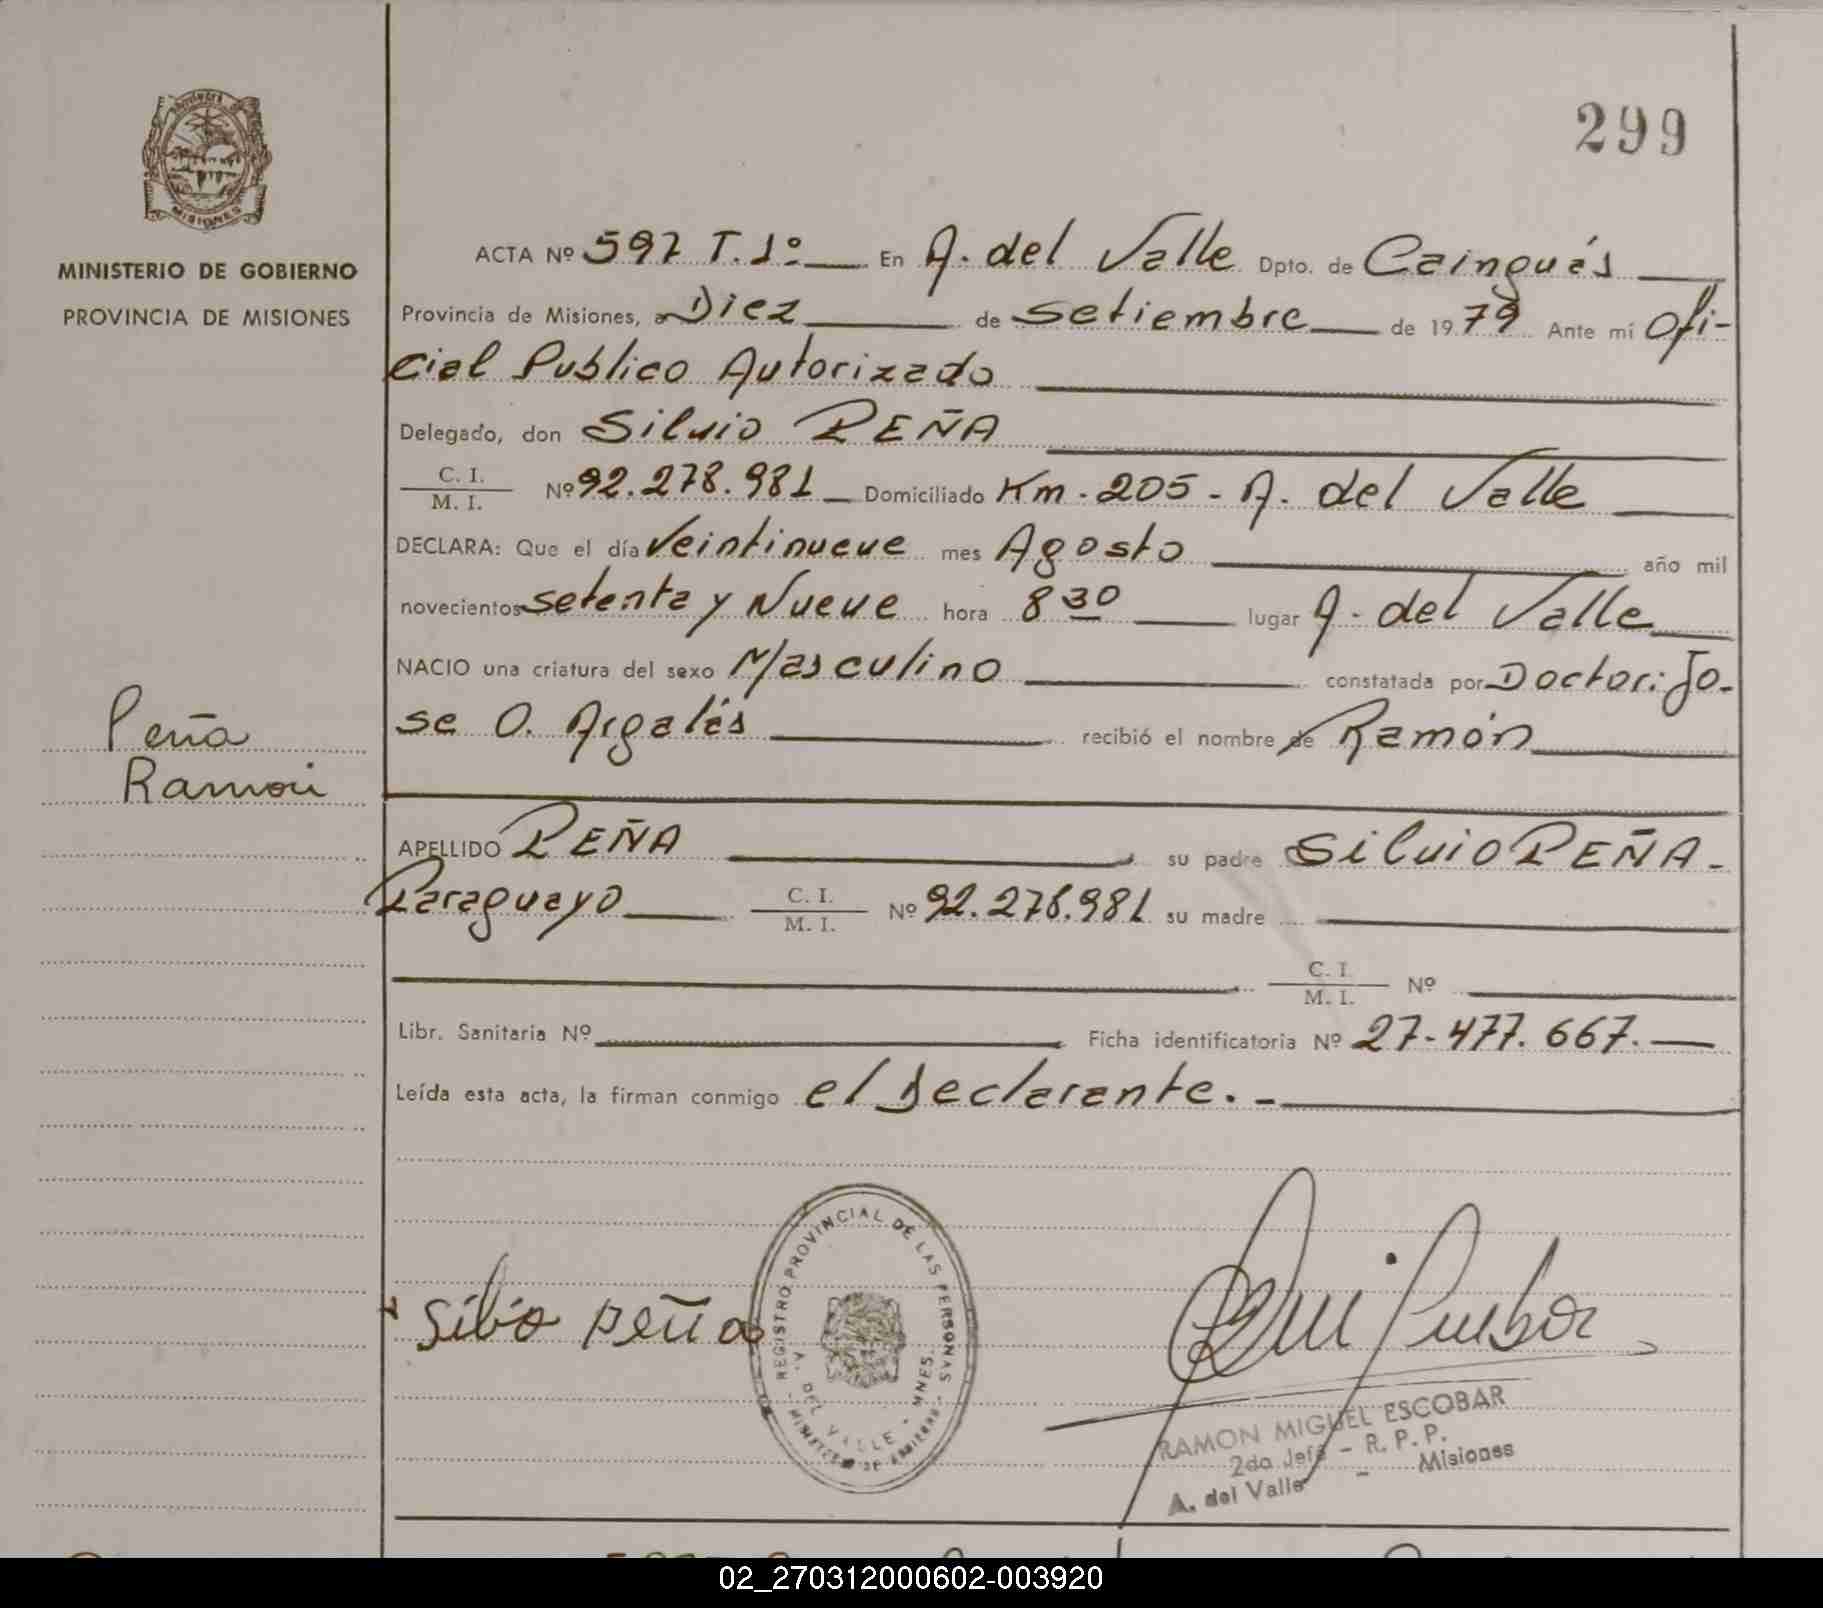 299
MISIONES
MINISTERIO DE GOBIERNO
PROVINCIA DE MISIONES
Peña
Ramón
ACTA Nº 597 T.1º En A. del Valle Dpto. de Cainguás
Provincia de Misiones, a Diez de Setiembre de 1979 Ante mí Ofi-
cial Publico Autorizado
Delegado, don Silvio PEÑA
C. I.
M. I. Nº 92.278.981 Domiciliado Km - 205 - A. del Valle
DECLARA: Que el día Veintinueve mes Agosto año mil
novecientos setenta y Nueve hora 8 30 lugar A. del Valle
NACIO una criatura del sexo Masculino constatada por Doctor: Jo-
se O. Argalés recibió el nombre de Ramón
APELLIDO PEÑA su padre Silvio PEÑA -
Paraguayo C. I.
M. I. Nº 92.278.981 su madre
C. I.
M. I. Nº
Libr. Sanitaria Nº Ficha identificatoria Nº 27-477.667.
Leída esta acta, la firman conmigo el Declarante. -
Silbio peña
REGISTRO PROVINCIAL DE LAS PERSONAS
A. DEL VALLE - MNES.
MINISTERIO DE GOBIERNO
RAMON MIGUEL ESCOBAR
2do Jefe - R. P. P.
A. del Valle - Misiones
02_270312000602-003920